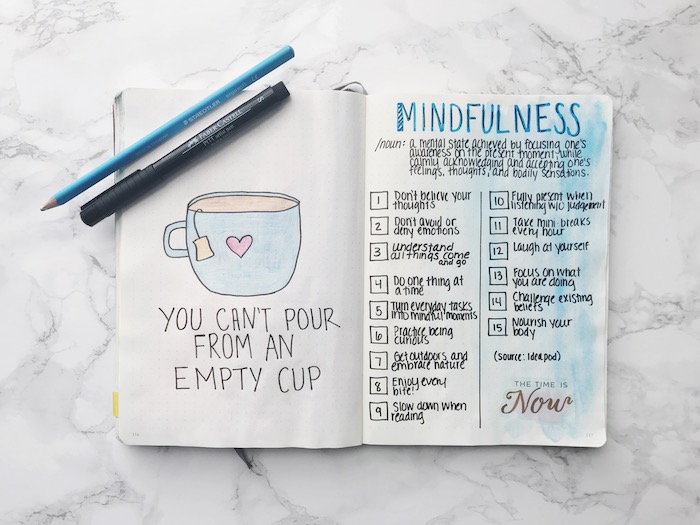 STAEDTLER
FABER-CASTELL
PITT artist pen
S
YOU CAN'T POUR
FROM AN
EMPTY CUP
MINDFULNESS
/noun: a mental state achieved by focusing one's
awareness on the present moment, while
calmly acknowledging and accepting one's
feelings, thoughts, and bodily sensations.
1 Don't believe your
thoughts
2 Don't avoid or
deny emotions
3 understand
all things come
and go
4 Do one thing at
a time
5 Turn everyday tasks
into mindful moments
6 Practice being
curious
7 Get outdoors and
embrace nature
8 Enjoy every
bite!
9 Slow down when
reading
10 Fully present when
listening w/o judgement
11 Take mini-breaks
every hour
12 Laugh at yourself
13 Focus on what
you are doing
14 Challenge existing
beliefs
15 Nourish your
body
(source: Ideapod)
THE TIME IS
Now